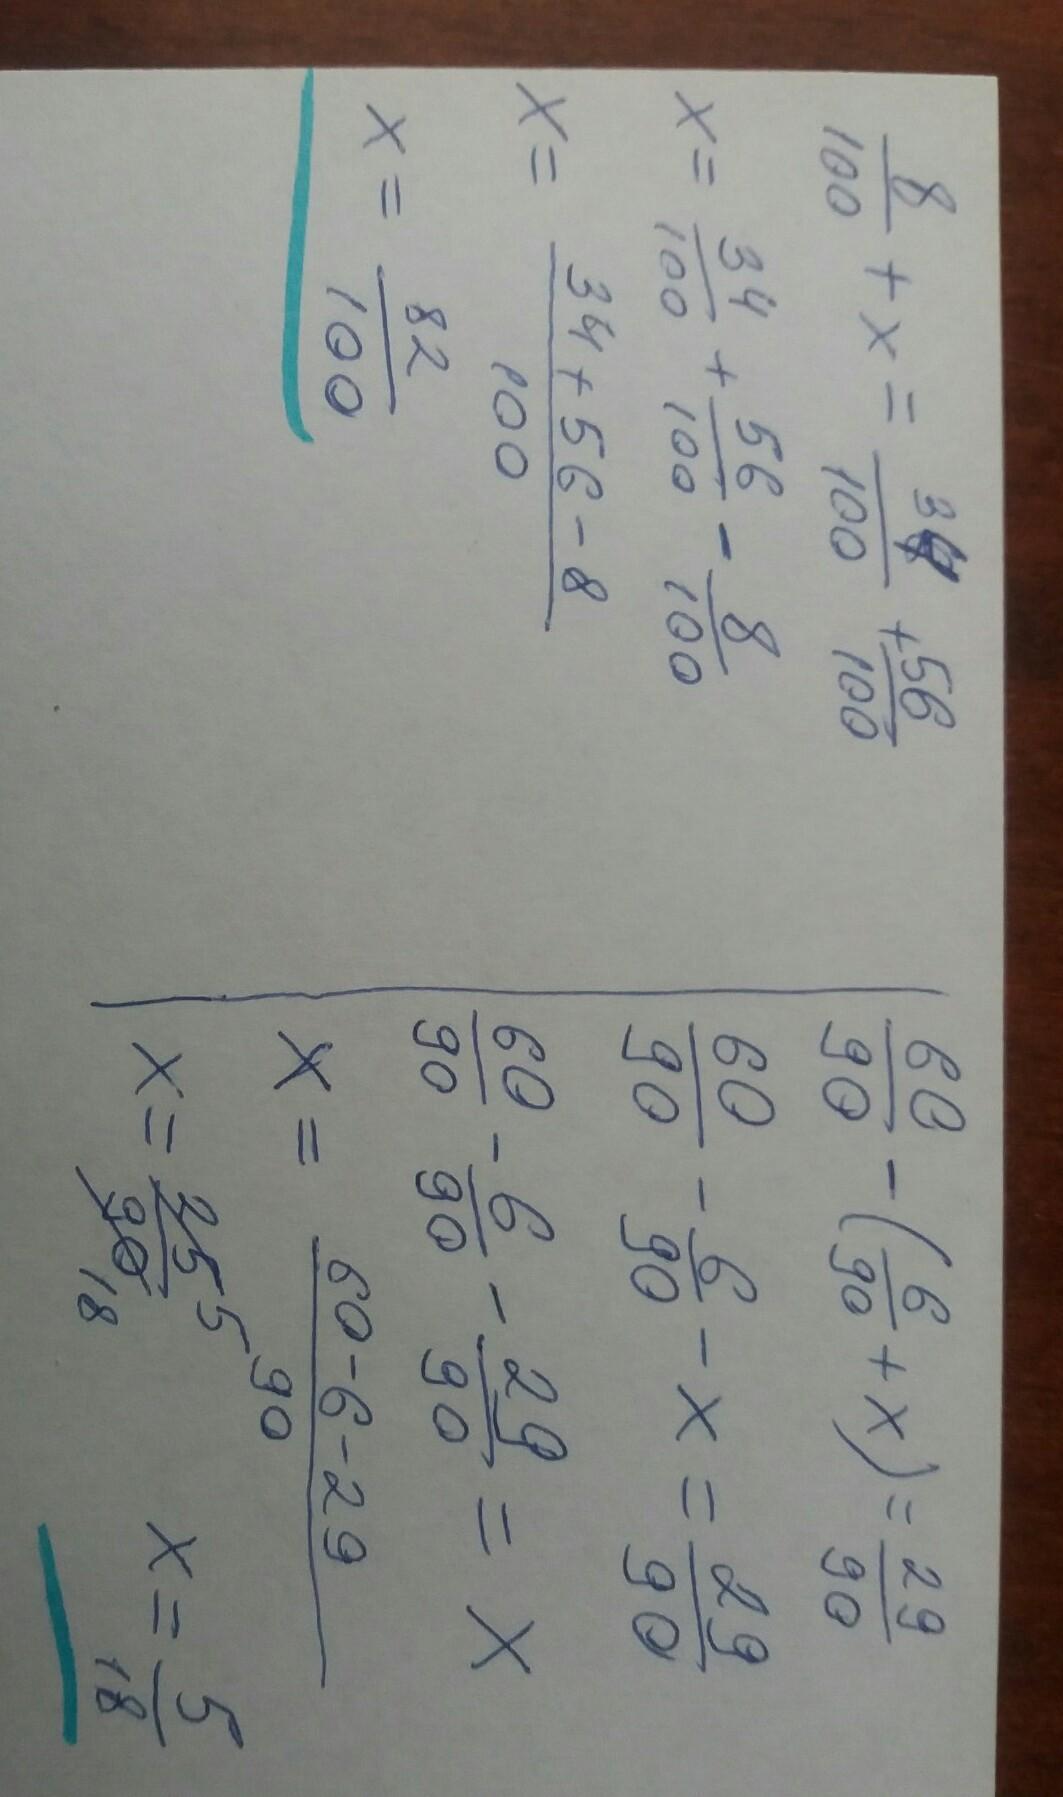 8/100 + x = 34/100 + 56/100
x = 34/100 + 56/100 - 8/100
x = (34 + 56 - 8)/100
x = 82/100
60/90 - (6/90 + x) = 29/90
60/90 - 6/90 - x = 29/90
60/90 - 6/90 - 29/90 = x
x = (60 - 6 - 29)/90
x = 25/90 5 18 x = 5/18